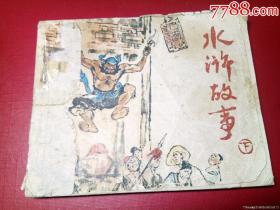 7788.com
水浒故事
下